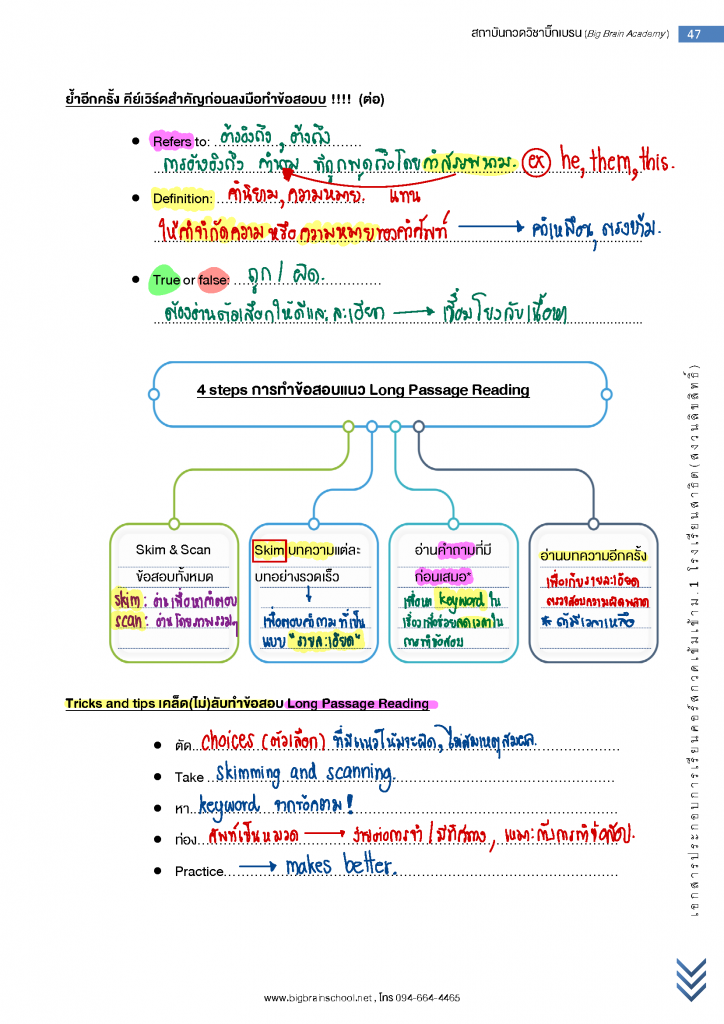 สถาบันกวดวิชาบิ๊กเบรน (Big Brain Academy) 47
ย้ำอีกครั้ง คีย์เวิร์ดสำคัญก่อนลงมือทำข้อสอบบ !!!! (ต่อ)
• Refers to: อ้างอิงถึง , อ้างถึง
การอ้างอิงถึง คำนาม ที่ถูกพูดถึงโดยคำสรรพนาม. ex he, them, this.
• Definition: คำนิยาม, ความหมาย. แทน
ให้คำจำกัดความ หรือ ความหมายของคำศัพท์ → คำเหมือน, ตรงข้าม.
• True or false: ถูก / ผิด.
ต้องอ่านตัวเลือกให้ดีและละเอียด → เชื่อมโยงกับเนื้อหา
4 steps การทำข้อสอบแนว Long Passage Reading
Skim & Scan
ข้อสอบทั้งหมด
skim : อ่านเพื่อหาคำตอบ
scan : อ่านโดยภาพรวมๆ
Skim บทความแต่ละ
บทอย่างรวดเร็ว
↓
เพื่อตอบคำถามที่เป็น
แบบ "รายละเอียด"
อ่านคำถามที่มี
ก่อนเสมอ*
เพื่อหา keyword ใน
เรื่องเพื่อช่วยลดเวลาใน
การทำข้อสอบ
อ่านบทความอีกครั้ง
เพื่อเก็บรายละเอียด
ตรวจสอบความผิดพลาด
* ถ้ามีเวลาเหลือ
Tricks and tips เคล็ด(ไม่)ลับทำข้อสอบ Long Passage Reading
• ตัด choices (ตัวเลือก) ที่มีแนวโน้มจะผิด, ไม่สมเหตุสมผล.
• Take skimming and scanning.
• หา keyword จากข้อถาม!
• ท่อง ศัพท์เป็นหมวด → ง่ายต่อการจำ / มีทิศทาง , เหมาะกับการทำข้อสอบ.
• Practice → makes better.
เอกสารประกอบการเรียนคอร์สกวดเข้มเข้าม.1 โรงเรียนสาธิต(สงวนลิขสิทธิ์)
www.bigbrainschool.net , โทร 094-664-4465